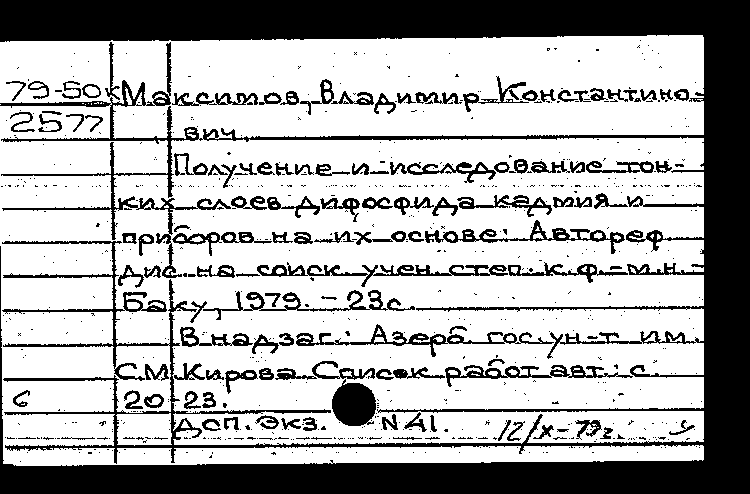 79-50к Максимов, Владимир Константино-
2577 вич.
Получение и исследование тон-
ких слоев дифосфида кадмия и
приборов на их основе: Автореф.
дис. на соиск. учен. степ. к.ф.-м.н.-
Баку, 1979. - 23с.
В надзаг.: Азерб. гос. ун-т им.
С.М. Кирова Список работ авт.: с.
6 20-23.
ДСП. Экз. N 41. 12/X-79г.